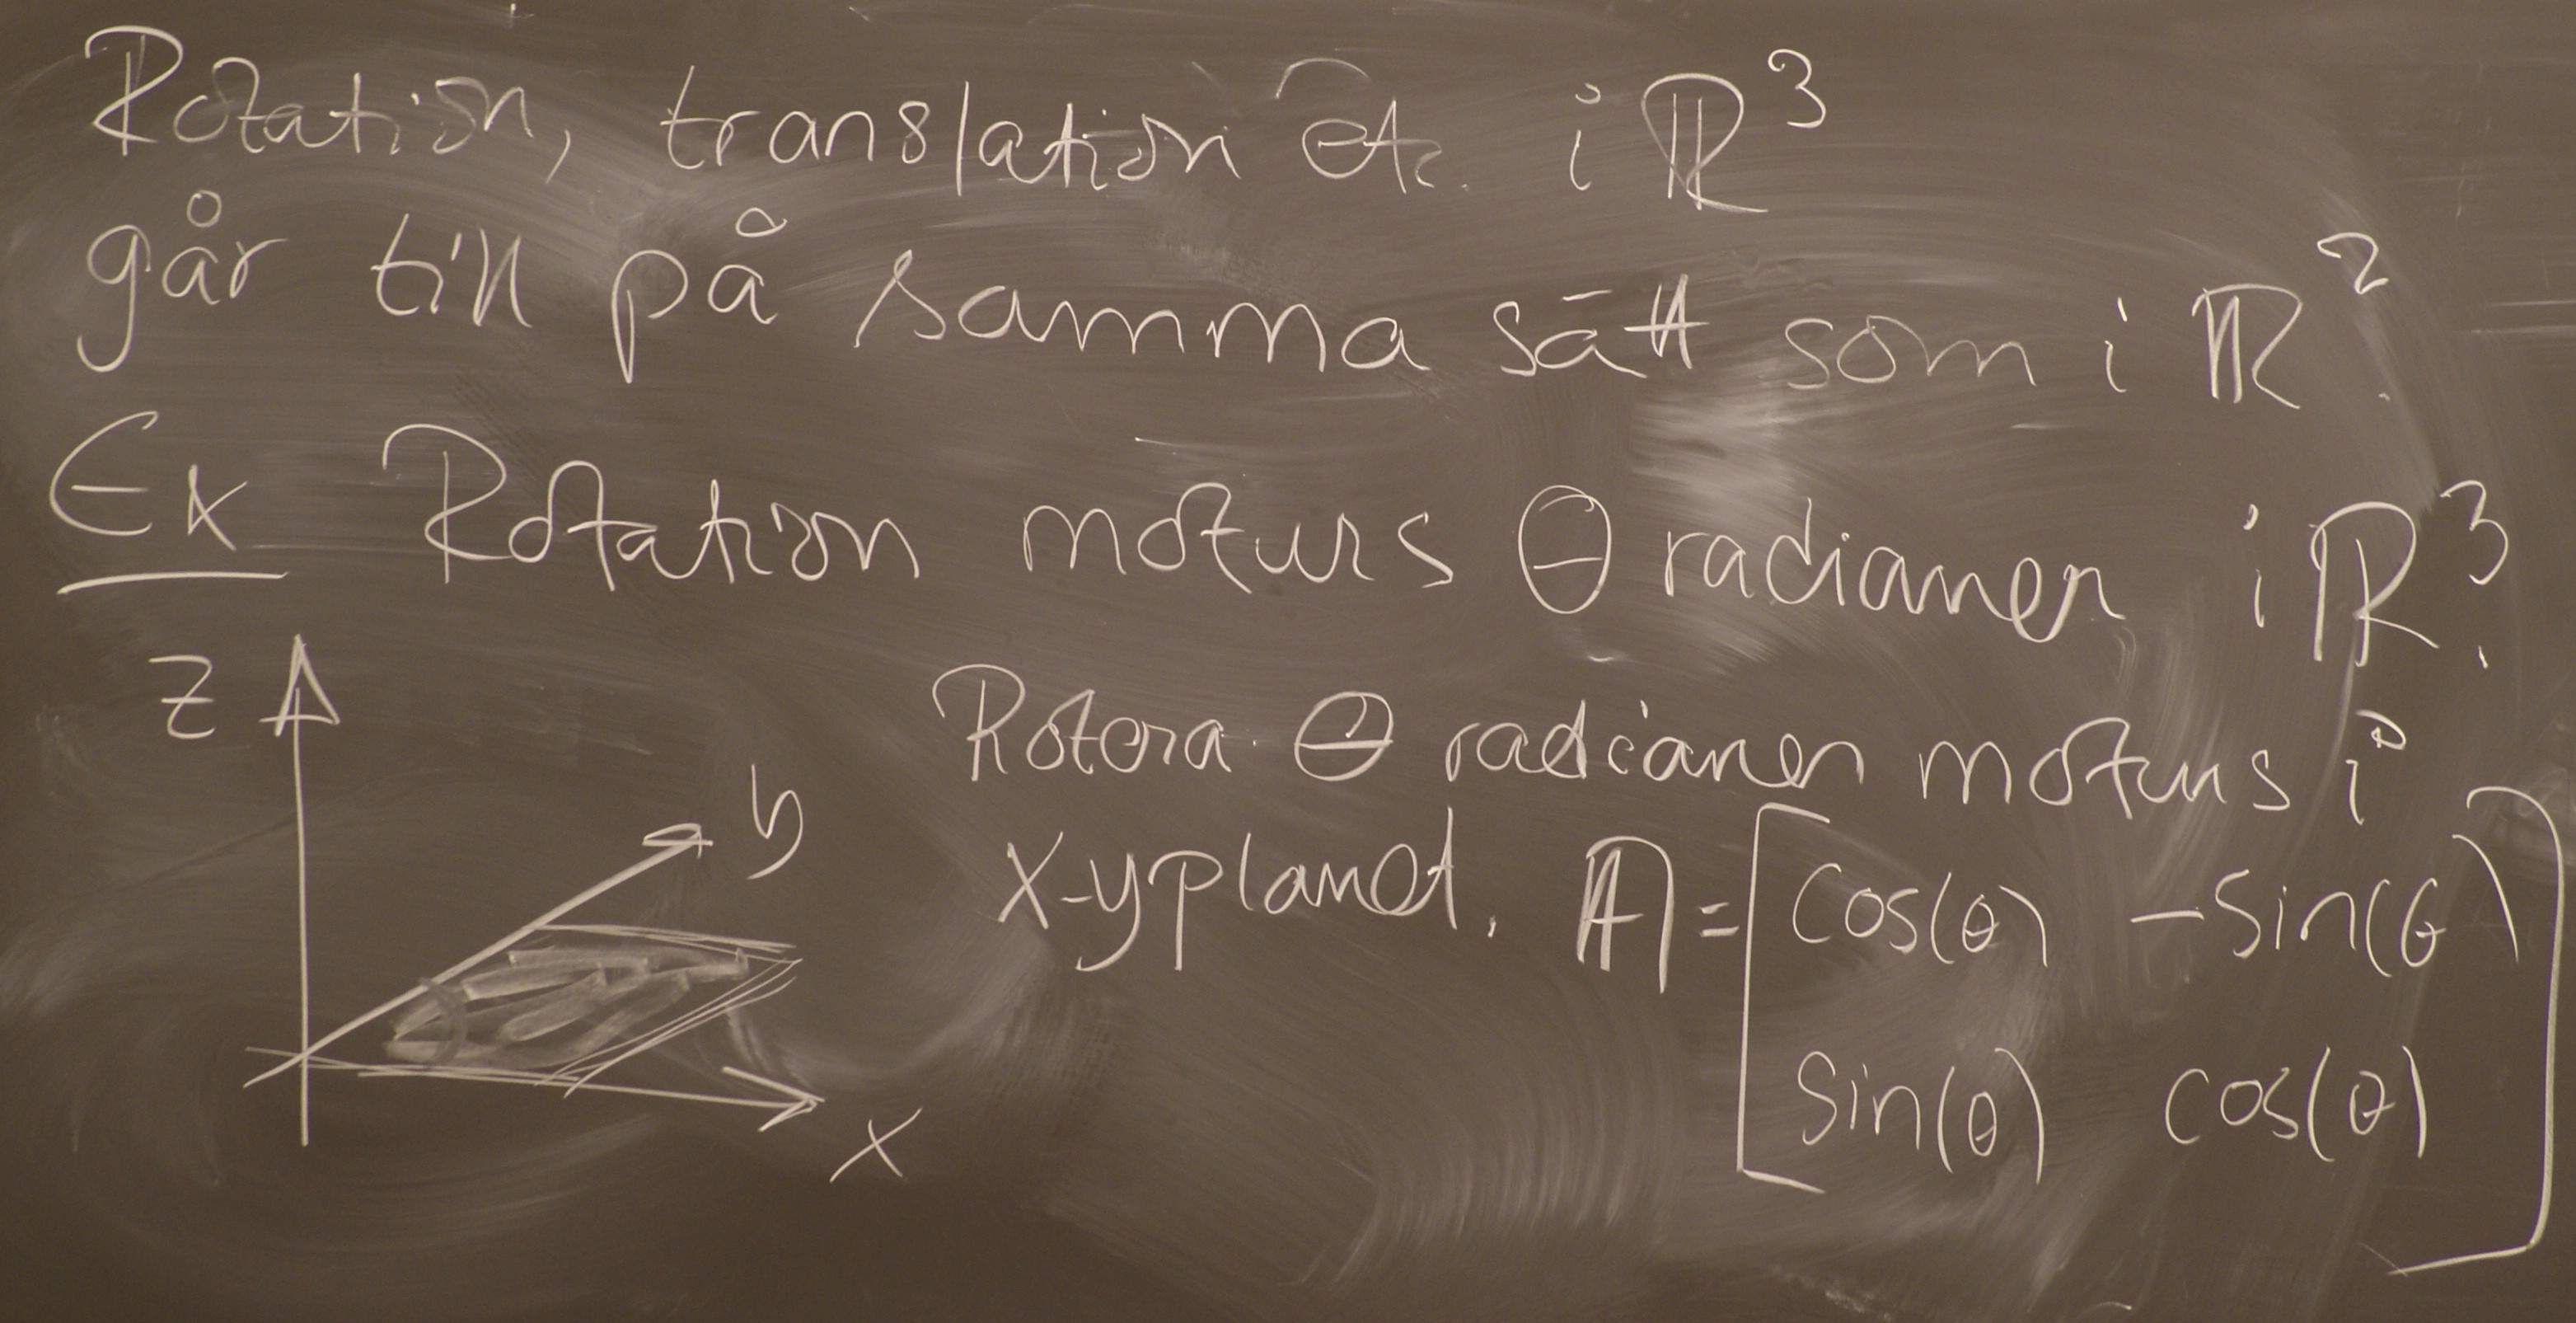 Rotation, translation etc. i ℝ³
går till på samma sätt som i ℝ².
Ex Rotation moturs θ radianer i ℝ³.
z
y
x
Rotera θ radianer moturs i
x-yplanet. A = [cos(θ) -sin(θ)
sin(θ) cos(θ)]